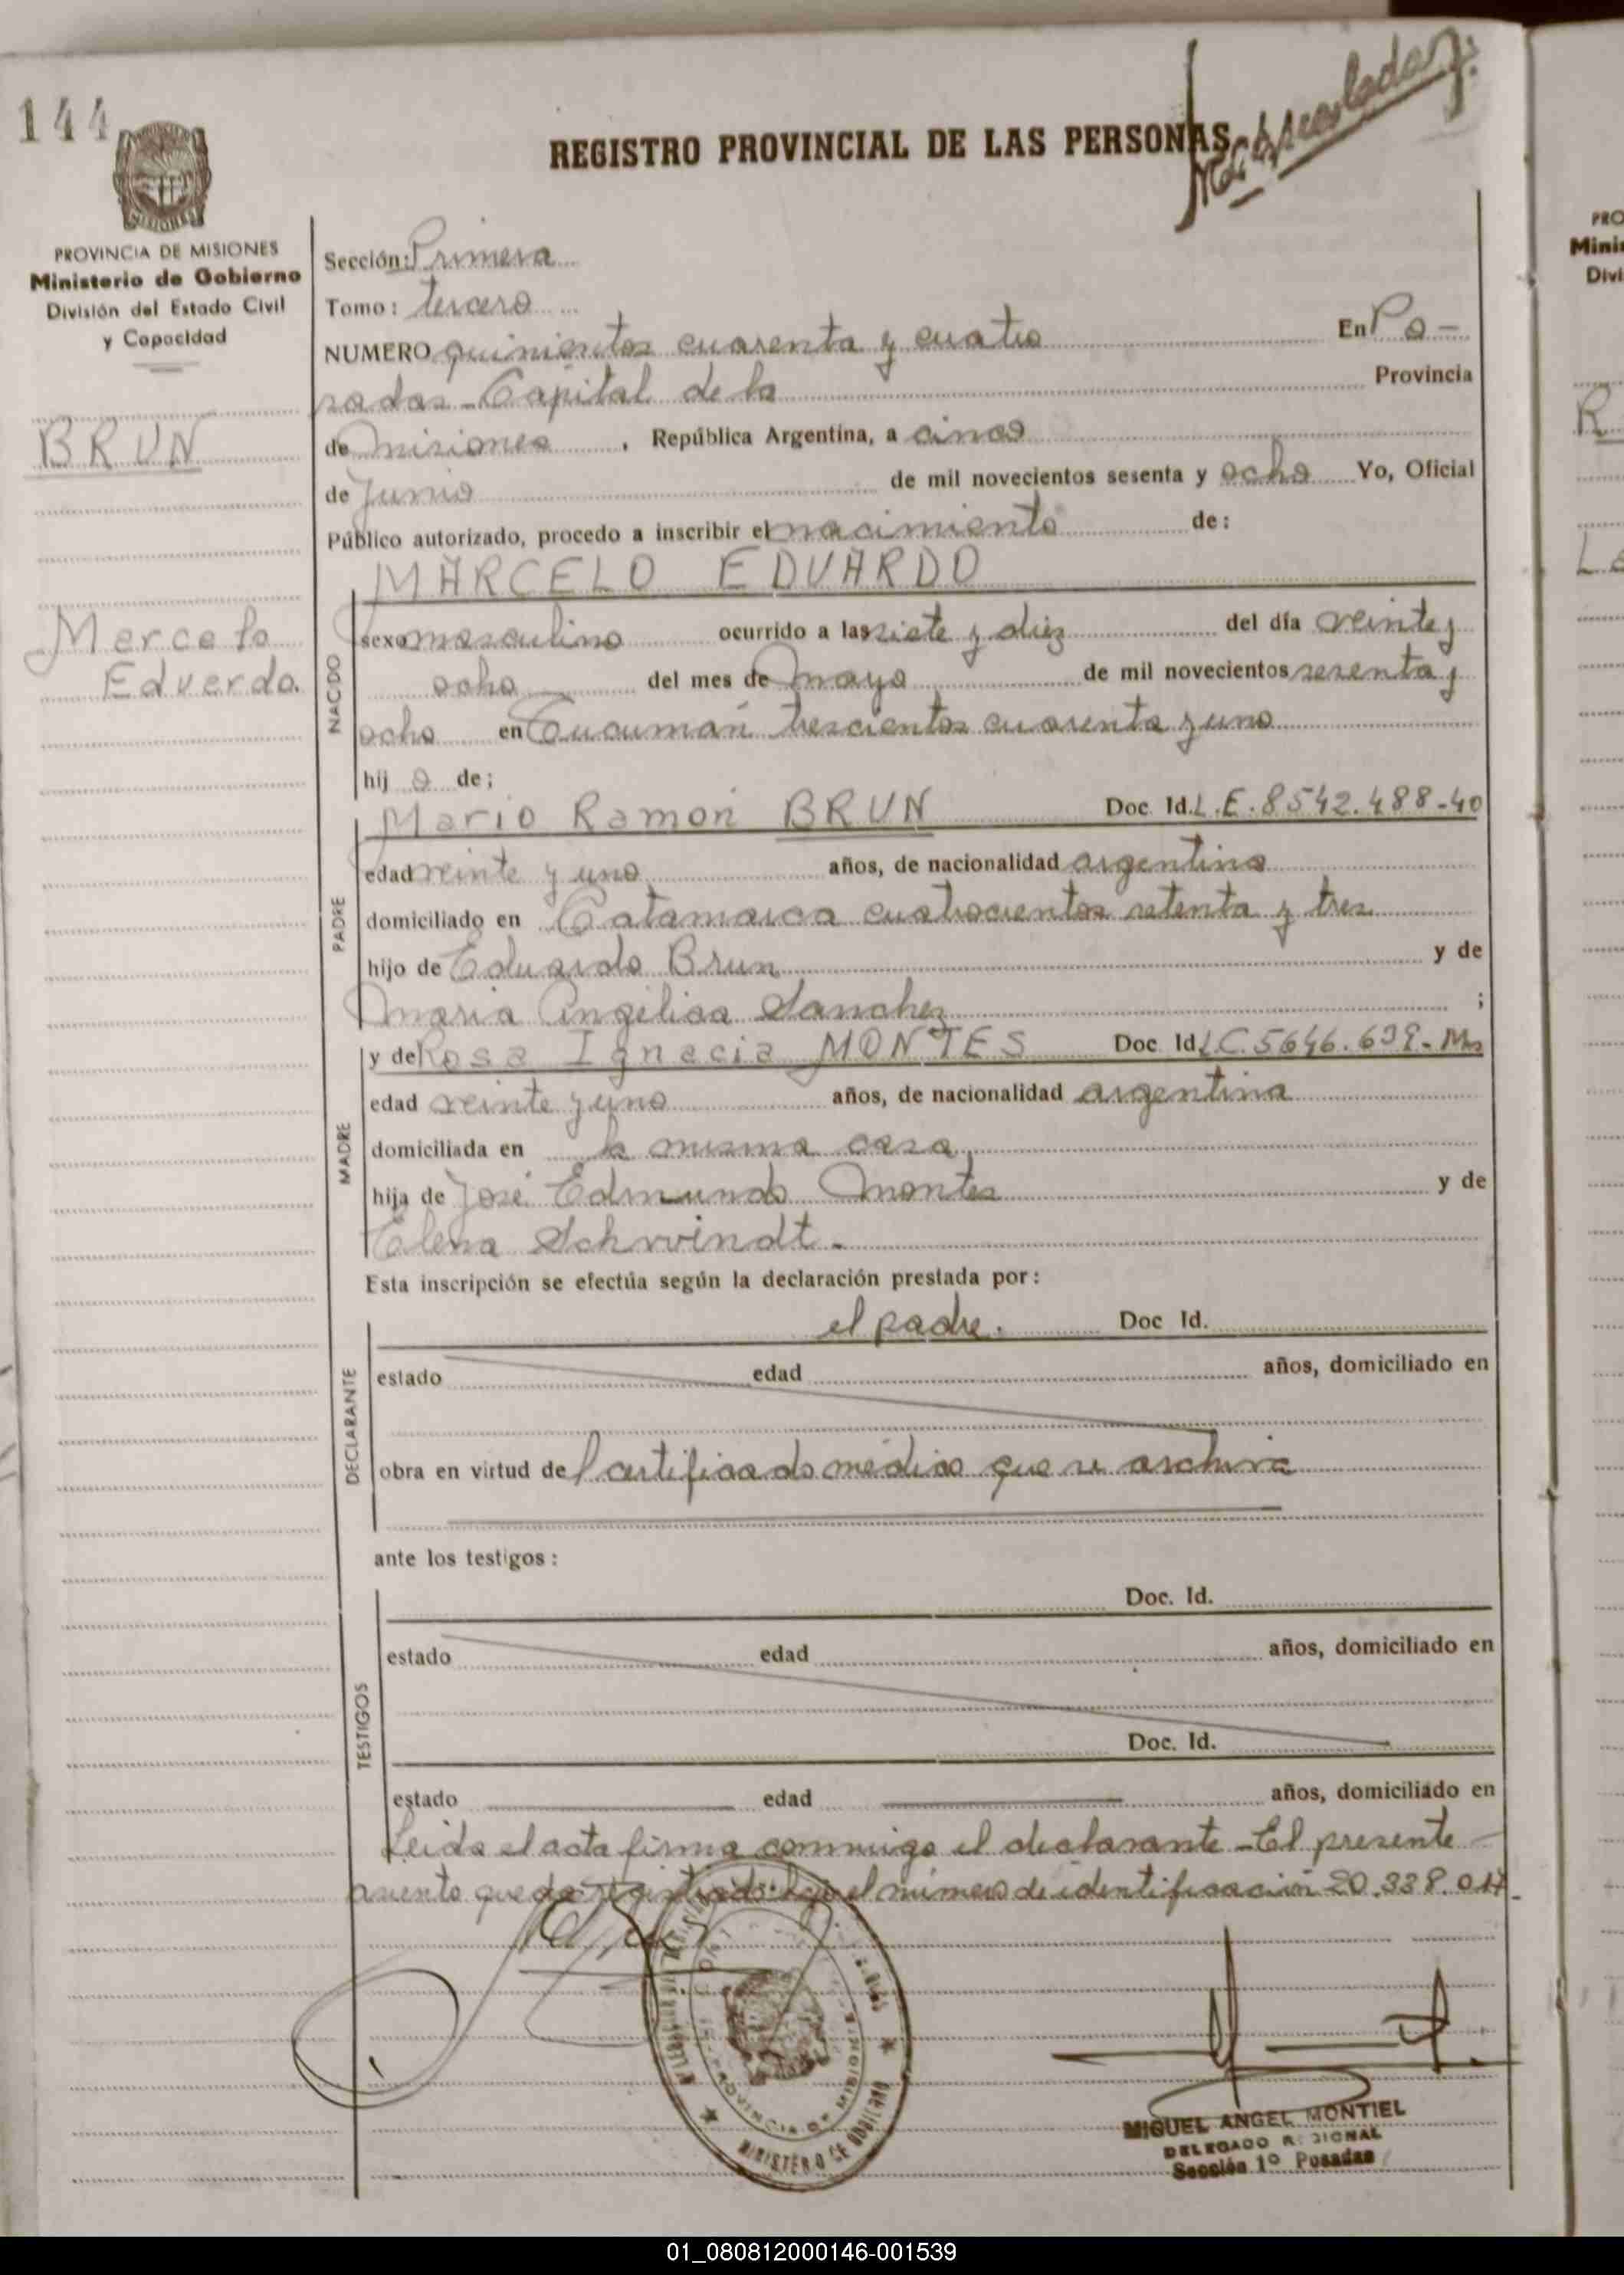 144
REGISTRO PROVINCIAL DE LAS PERSONAS
PROVINCIA DE MISIONES
Ministerio de Gobierno
División del Estado Civil
y Capacidad
BRUN
Marcelo
Eduardo.
Sección: Primera
Tomo: tercero
NUMERO quinientos cuarenta y cuatro En Po-
sadas - Capital de la Provincia
de misiones, República Argentina, a cinco
de Junio de mil novecientos sesenta y ocho Yo, Oficial
Público autorizado, procedo a inscribir el nacimiento de:
MARCELO EDUARDO
NACIDO
sexo masculino ocurrido a las siete y diez del día veinte y
ocho del mes de mayo de mil novecientos sesenta y
ocho en Tucumán trescientos cuarenta y uno
hij o de;
Mario Ramón BRUN Doc. Id. L.E. 8542.488-40
PADRE
edad veinte y uno años, de nacionalidad argentina
domiciliado en Catamarca cuatrocientos setenta y tres
hijo de Eduardo Brun y de
Maria Angélica Sanchez ;
MADRE
y de Rosa Ignacia MONTES Doc. Id. L.C. 5646.639-Ms
edad veinte y uno años, de nacionalidad argentina
domiciliada en la misma casa
hija de José Edmundo Montes y de
Elena Schvvindt.
Esta inscripción se efectúa según la declaración prestada por:
DECLARANTE
el padre. Doc Id.
estado edad años, domiciliado en
obra en virtud del certificado médico que se archiva
ante los testigos:
TESTIGOS
Doc. Id.
estado edad años, domiciliado en
Doc. Id.
estado edad años, domiciliado en
Leida el acta firma conmigo el declarante - El presente
asiento queda registrado bajo el número de identificación 20.338.017.
PROVINCIA DE MISIONES
MINISTERIO DE GOBIERNO
MIGUEL ANGEL MONTIEL
DELEGADO REGIONAL
Sección 1º Posadas
01_080812000146-001539